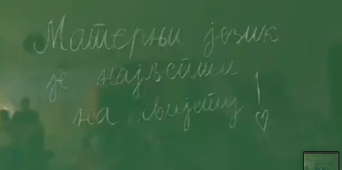 Матерњи језик
је најљепши
на свијету!♡